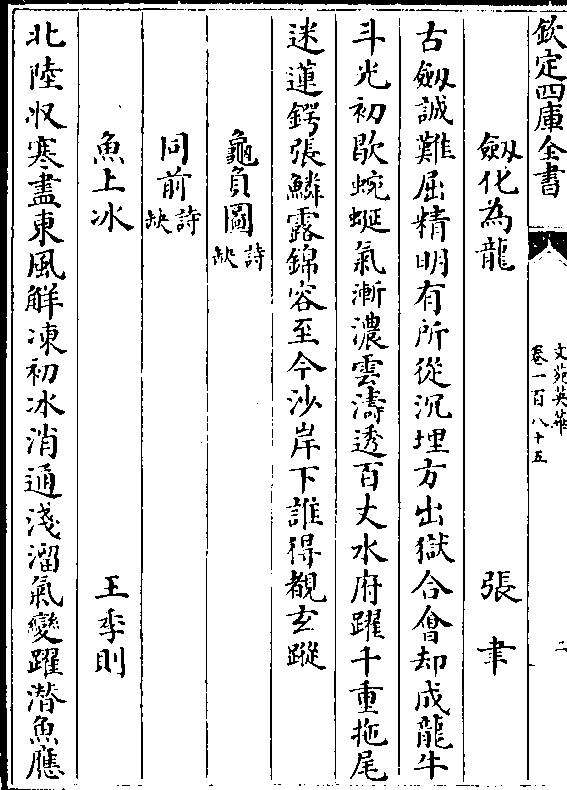 欽定四庫全書
文苑英華
卷一百八十五
二
劔化為龍 張聿
古劔誠難屈精明有所從沉埋方出獄合會却成龍牛
斗光初歇蜿蜒氣漸濃雲濤透百丈水府躍千重拖尾
迷蓮鍔張鱗露錦容至今沙岸下誰得覩玄蹤
龜負圖詩缺
同前詩缺
魚上冰 王季則
北陸收寒盡東風解凍初冰消通淺溜氣變躍潛魚應